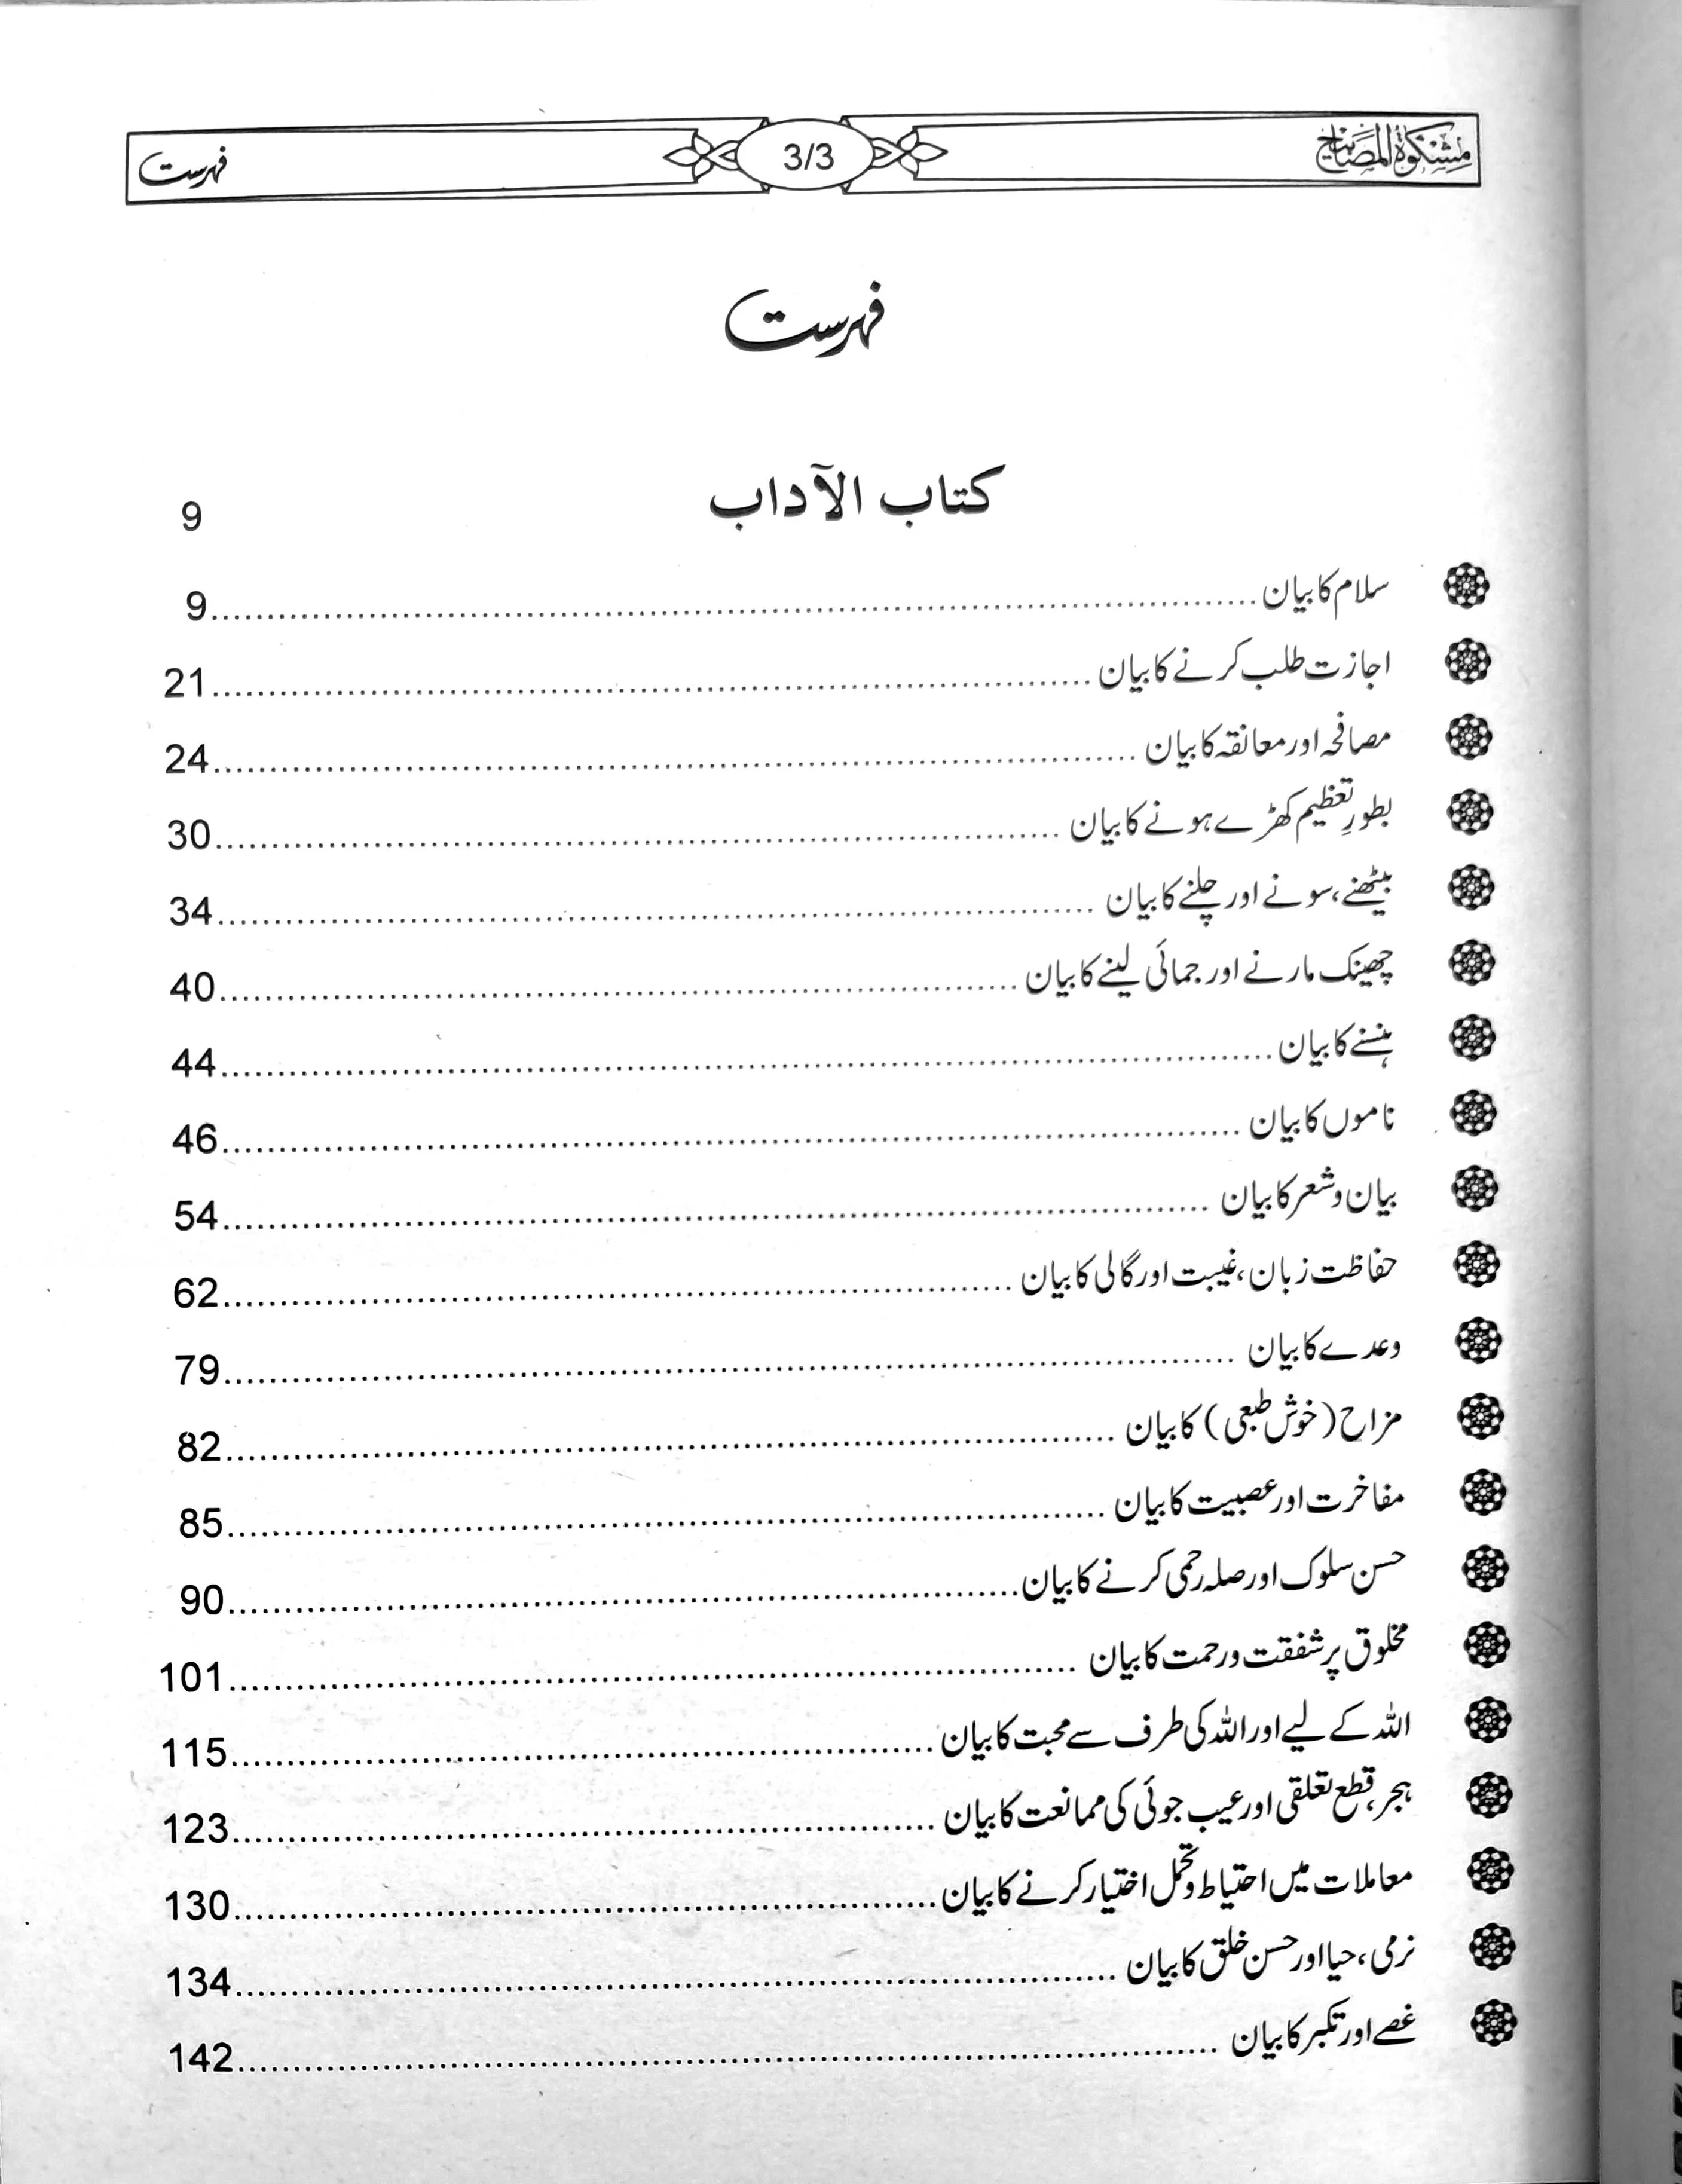 مشکوٰۃ المصابیح 3/3 فہرست
فہرست
کتاب الآداب 9
سلام کا بیان ........ 9
اجازت طلب کرنے کا بیان ........ 21
مصافحہ اور معانقہ کا بیان ........ 24
بطورِ تعظیم کھڑے ہونے کا بیان ........ 30
بیٹھنے، سونے اور چلنے کا بیان ........ 34
چھینک مارنے اور جمائی لینے کا بیان ........ 40
ہنسنے کا بیان ........ 44
ناموں کا بیان ........ 46
بیان و شعر کا بیان ........ 54
حفاظت زبان، غیبت اور گالی کا بیان ........ 62
وعدے کا بیان ........ 79
مزاح (خوش طبعی) کا بیان ........ 82
مفاخرت اور عصبیت کا بیان ........ 85
حسن سلوک اور صلہ رحمی کرنے کا بیان ........ 90
مخلوق پر شفقت و رحمت کا بیان ........ 101
اللہ کے لیے اور اللہ کی طرف سے محبت کا بیان ........ 115
ہجر، قطع تعلقی اور عیب جوئی کی ممانعت کا بیان ........ 123
معاملات میں احتیاط و تحمل اختیار کرنے کا بیان ........ 130
نرمی، حیا اور حسن خلق کا بیان ........ 134
غصے اور تکبر کا بیان ........ 142